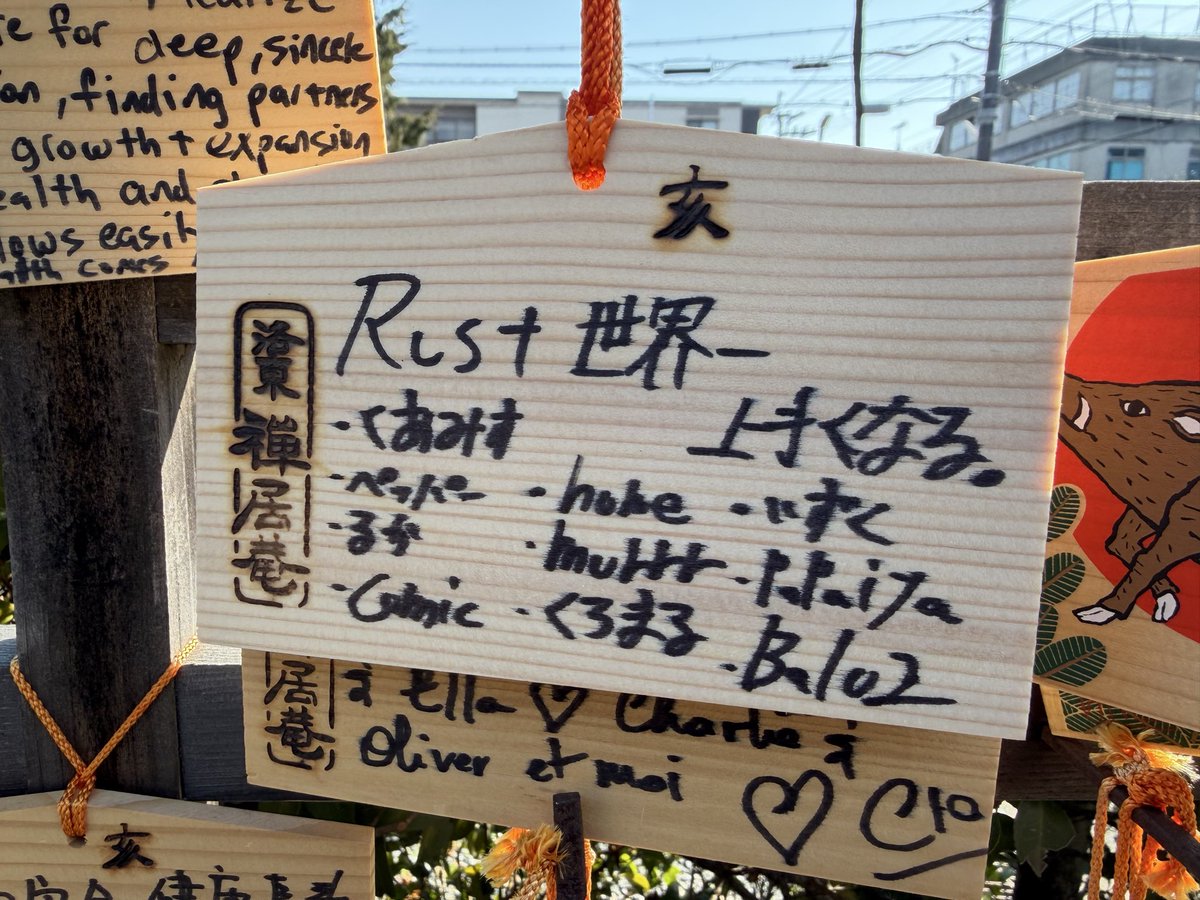 re for deep, sincere
on, finding partners
growth + expansion
ealth and
lows easily
alth comes
亥
洛東
禅居菴
Rust 世界一
上手くなる。
・くあみす
・ペッパー
・るぎ
・Comic
・hume
・muttt
・くろまる
・いすく
・Balo2
居菴
Ella ♡ Charlie
Oliver et moi
♡ Clo
亥